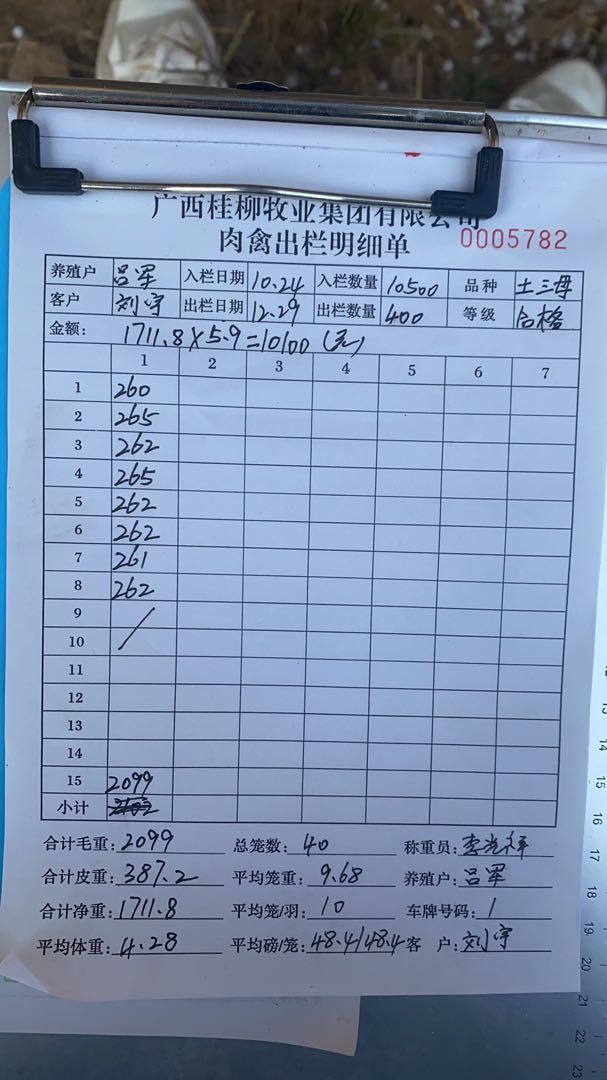 广西桂柳牧业集团有限公司
肉禽出栏明细单 0005782
养殖户 吕军 入栏日期 10.24 入栏数量 10500 品种 土三母
客户 刘宇 出栏日期 12.29 出栏数量 400 等级 合格
金额: 1711.8×5.9=10100(元)
1 2 3 4 5 6 7
1 260
2 265
3 262
4 265
5 262
6 262
7 261
8 262
9
10
11
12
13
14
15 2099
小计
合计毛重: 2099 总笼数: 40 称重员: 李光祥
合计皮重: 387.2 平均笼重: 9.68 养殖户: 吕军
合计净重: 1711.8 平均笼/羽: 10 车牌号码: 1
平均体重: 4.28 平均磅/笼: 48.4/48.4 客 户: 刘宇
12
13
14
15
16
17
18
19
20
21
22
23